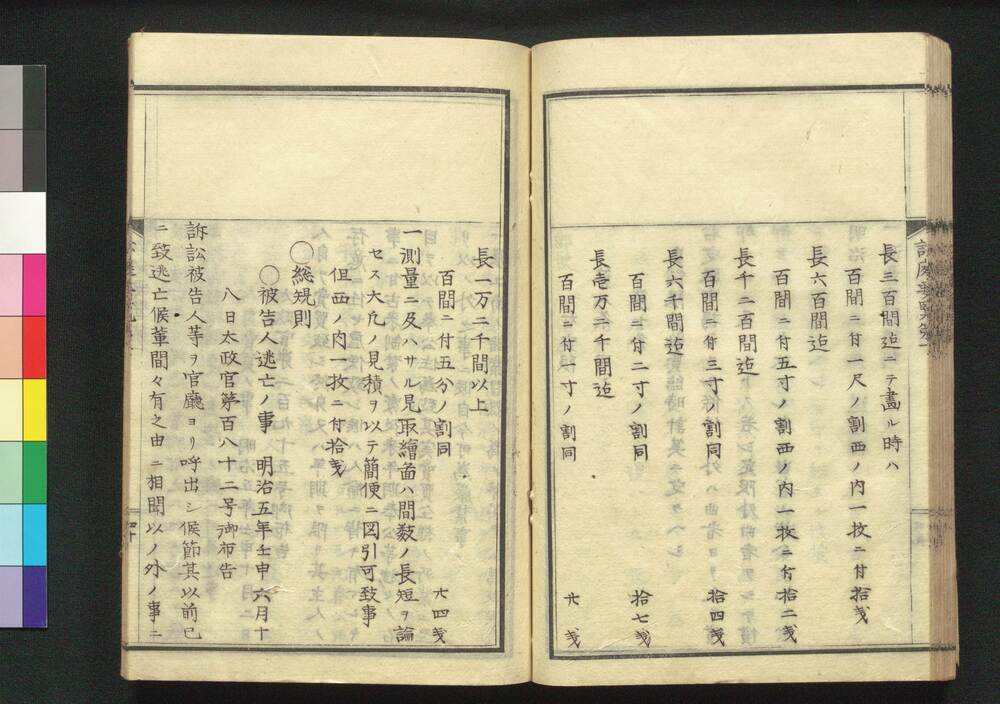 長三百間迠ニテ畫ル時ハ
百間ニ付一尺ノ割西ノ内一枚ニ付拾戔
長六百間迠
百間ニ付五寸ノ割西ノ内一枚ニ付拾二戔
長千二百間迠
百間ニ付三寸ノ割同 拾四戔
長六千間迠
百間ニ付二寸ノ割同 拾七戔
長壱万二千間迠
百間ニ付一寸ノ割同 廾戔
長一万二千間以上
百間ニ付五分ノ割同 廾四戔
一測量ニ及ハサル見取繪面ハ間数ノ長短ヲ論
セス大凢ノ見積ヲ以テ簡便ニ図引可致事
但西ノ内一枚ニ付拾戔
◯総規則
◯被告人逃亡ノ事 明治五年壬申六月十
八日太政官第百八十二号御布告
訴訟被告人等ヲ官廳ヨリ呼出シ候節其以前已
ニ致逃亡候輩間々有之由ニ相聞以ノ外ノ事ニ